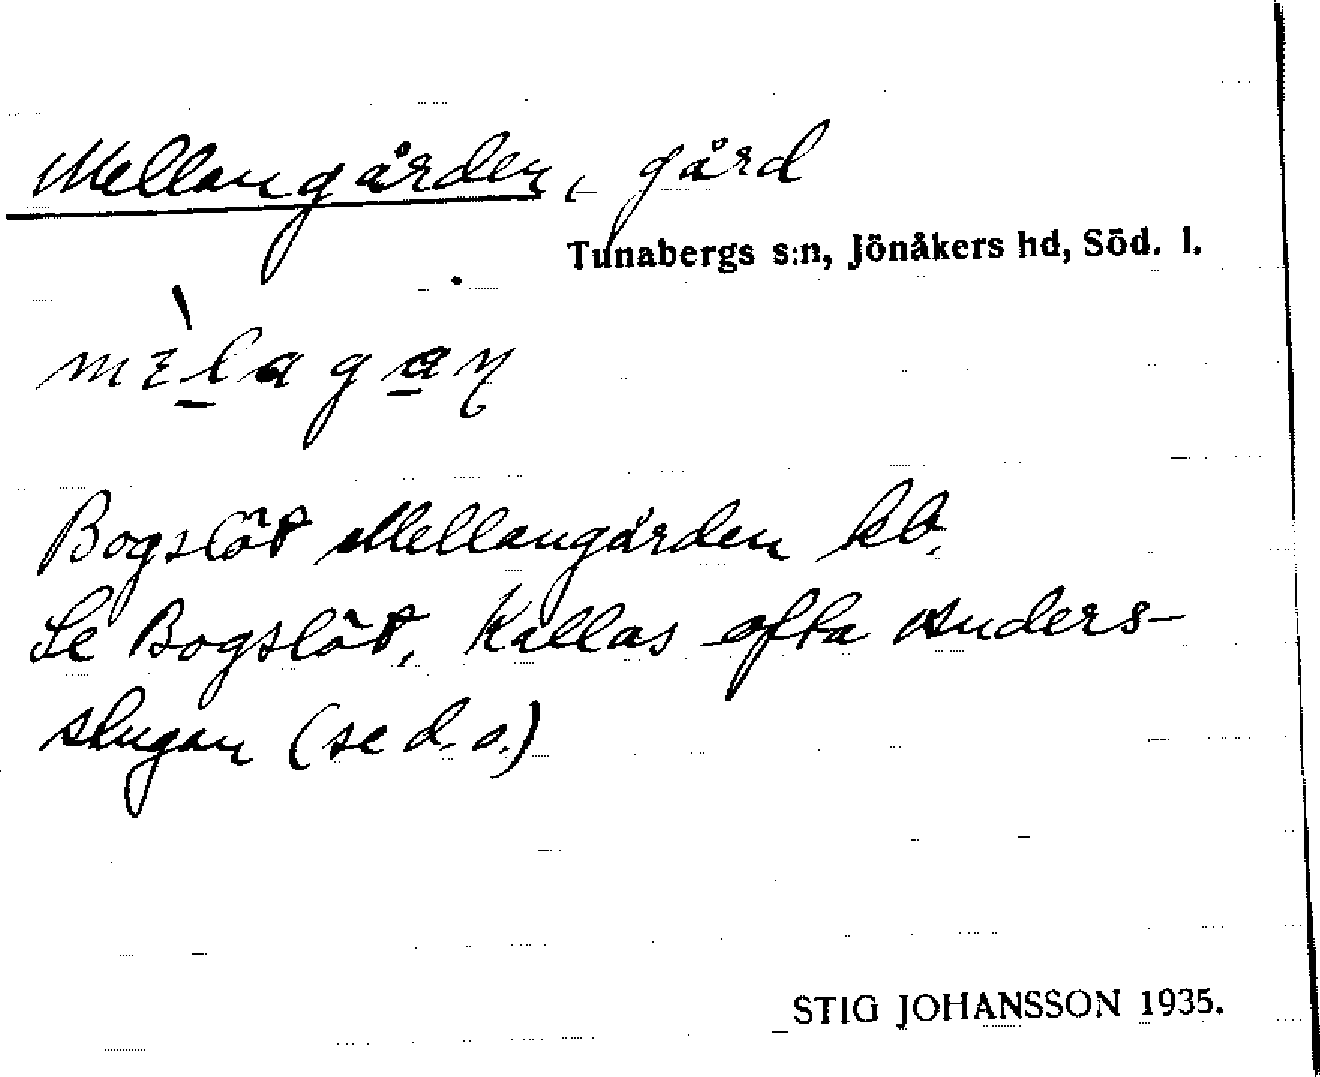 Mellangården, gård
Tunabergs s:n, Jönåkers hd, Söd. l.
Bogslöt Mellangården kb.
Se Bogslöt. Kallas ofta Anders-
stugan (se d. o.)
STIG JOHANSSON 1935.